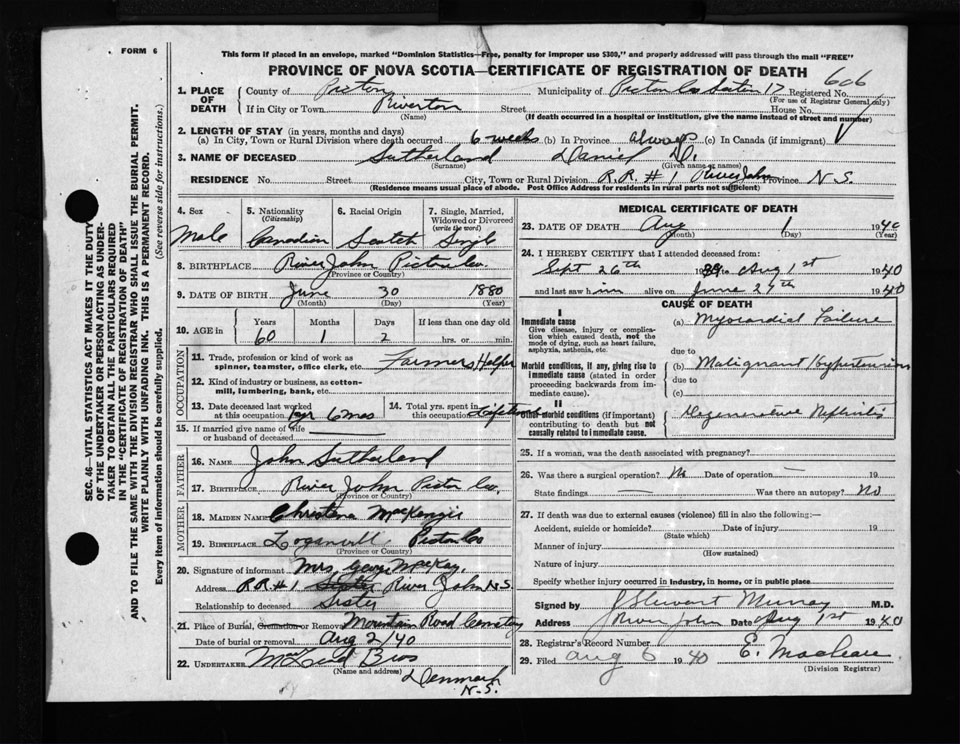 FORM 6
This form if placed in an envelope, marked "Dominion Statistics—Free, penalty for improper use $300," and properly addressed will pass through the mail "FREE"
PROVINCE OF NOVA SCOTIA—CERTIFICATE OF REGISTRATION OF DEATH
606
1. PLACE OF DEATH
County of Pictou Municipality of Pictou Co Section 17 Registered No.
(For use of Registrar General only)
If in City or Town Riverton Street House No.
(Name) (If death occurred in a hospital or institution, give the name instead of street and number)
2. LENGTH OF STAY (in years, months and days)
(a) In City, Town or Rural Division where death occurred 6 weeks (b) In Province always (c) In Canada (if immigrant)
3. NAME OF DECEASED Sutherland Daniel D.
(Surname) (Given name or names)
RESIDENCE No. Street City, Town or Rural Division R.R. #1 River John Province N.S.
(Residence means usual place of abode. Post Office Address for residents in rural parts not sufficient)
4. Sex Male
5. Nationality (Citizenship) Canadian
6. Racial Origin Scotch
7. Single, Married, Widowed or Divorced (write the word) Single
8. BIRTHPLACE River John Pictou Co.
(Province or Country)
9. DATE OF BIRTH June 30 1880
(Month) (Day) (Year)
10. AGE in Years Months Days If less than one day old
60 1 2 hrs. or min.
OCCUPATION
11. Trade, profession or kind of work as spinner, teamster, office clerk, etc. Farmers Helper
12. Kind of industry or business, as cotton-mill, lumbering, bank, etc.
13. Date deceased last worked at this occupation 1 yr 6 mos
14. Total yrs. spent in this occupation Lifetime
15. If married give name of wife or husband of deceased
FATHER
16. NAME John Sutherland
17. Birthplace River John Pictou Co.
(Province or Country)
MOTHER
18. MAIDEN NAME Christena MacKenzie
19. BIRTHPLACE Loganville Pictou Co
(Province or Country)
20. Signature of informant Mrs. George MacKay
Address R.R. #1 River John N.S.
Relationship to deceased Sister
21. Place of Burial, Cremation or Removal Mountain Road Cemetery
Date of burial or removal Aug 2/40
22. UNDERTAKER Bros
(Name and address) Denmark
N.S.
MEDICAL CERTIFICATE OF DEATH
23. DATE OF DEATH Aug 1 1940
(Month) (Day) (Year)
24. I HEREBY CERTIFY that I attended deceased from:
Sept 26th 1939 to Aug 1st 1940
and last saw him alive on June 27th 1940
CAUSE OF DEATH
I
Immediate cause
Give disease, injury or complication which caused death, not the mode of dying, such as heart failure, asphyxia, asthenia, etc.
(a) Myocardial Failure
due to
Morbid conditions, if any, giving rise to immediate cause (stated in order proceeding backwards from immediate cause).
(b) Malignant Hypertension
due to
(c)
II
Other morbid conditions (if important) contributing to death but not causally related to immediate cause.
Degenerative Nephritis
25. If a woman, was the death associated with pregnancy?
26. Was there a surgical operation? No Date of operation — 19
State findings — Was there an autopsy? No
27. If death was due to external causes (violence) fill in also the following:—
Accident, suicide or homicide? Date of injury 19
(State which)
Manner of injury
(How sustained)
Nature of injury
Specify whether injury occurred in industry, in home, or in public place
Signed by J Stewart Murray M.D.
Address River John Date Aug 1st 1940
28. Registrar's Record Number
29. Filed Aug 6 1940 E. Maclean
(Division Registrar)
SEC. 46—VITAL STATISTICS ACT MAKES IT THE DUTY OF THE UNDERTAKER OR PERSON ACTING AS UNDERTAKER TO OBTAIN ALL THE PARTICULARS REQUIRED IN THE "CERTIFICATE OF REGISTRATION OF DEATH"
AND TO FILE THE SAME WITH THE DIVISION REGISTRAR WHO SHALL ISSUE THE BURIAL PERMIT.
WRITE PLAINLY WITH UNFADING INK. THIS IS A PERMANENT RECORD.
Every item of information should be carefully supplied. (See reverse side for instructions.)